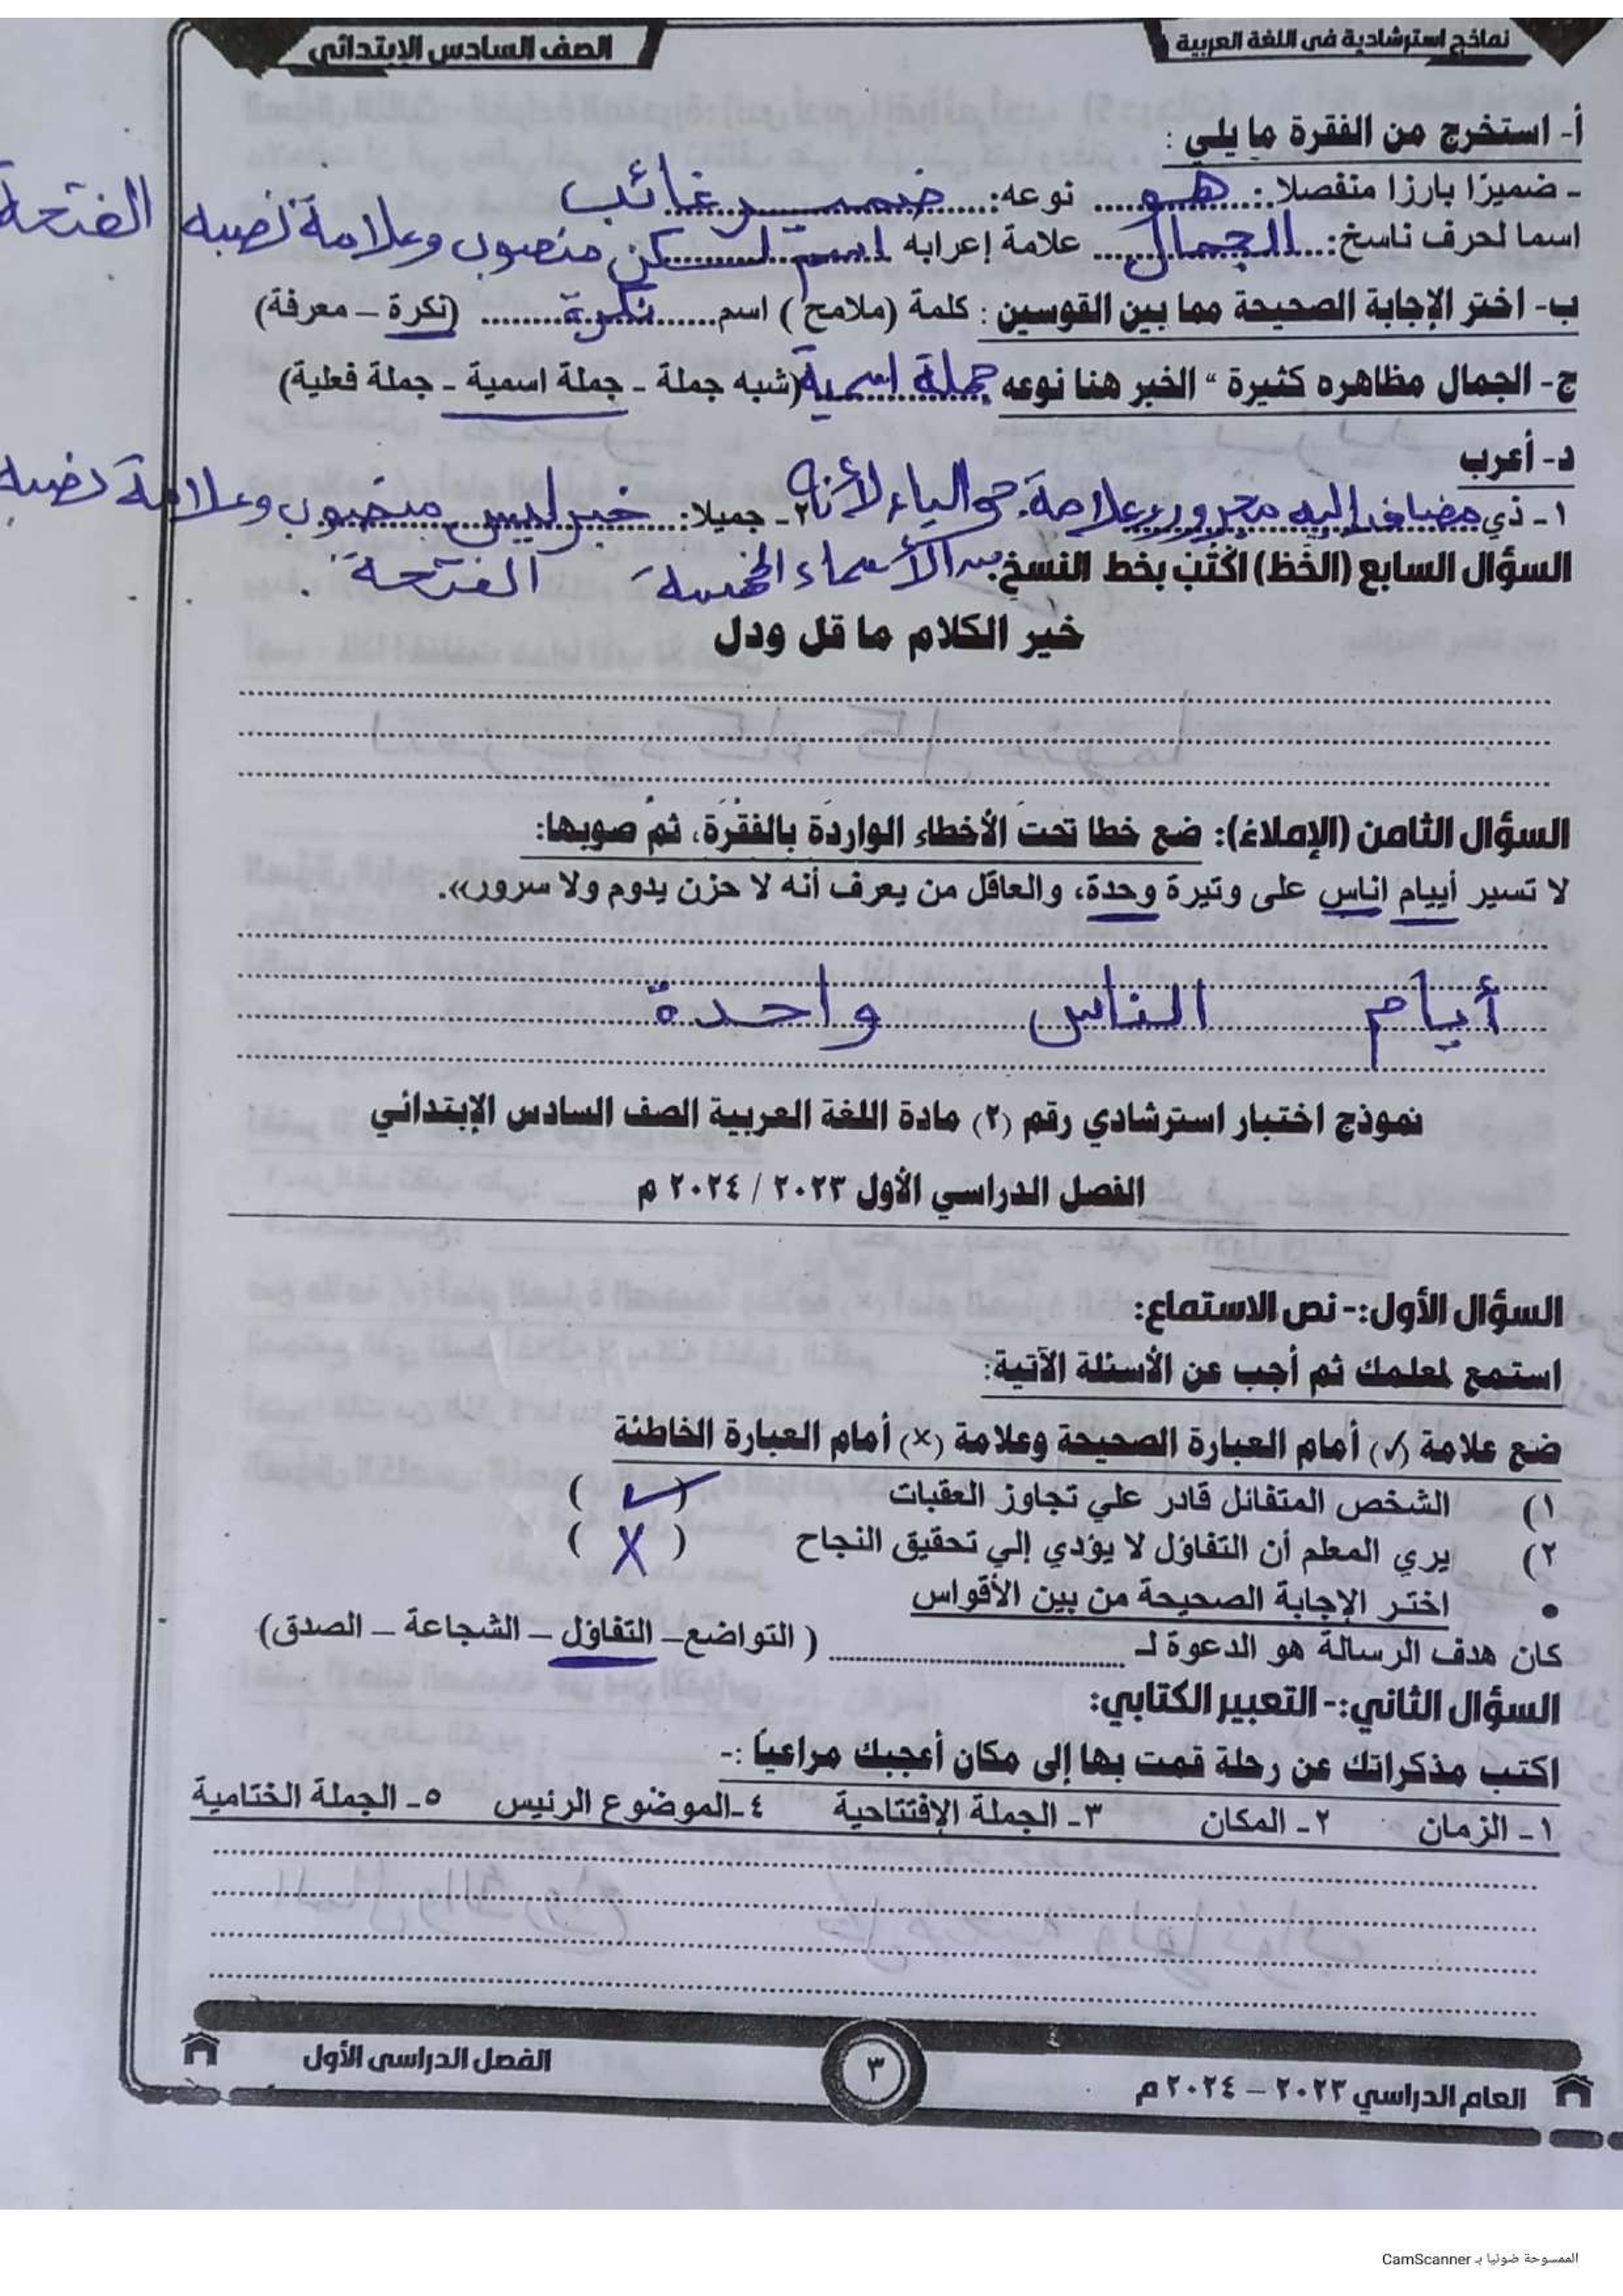 نماذج استرشادية في اللغة العربية
الصف السادس الابتدائي
أ- استخرج من الفقرة ما يلي :
- ضميرًا بارزا منفصلا: هو نوعه: ضمير غائب
اسما لحرف ناسخ: الجمال علامة إعرابه اسم لكن منصوب وعلامة نصبه الفتحة
ب- اختر الإجابة الصحيحة مما بين القوسين : كلمة (ملامح ) اسم نكرة (نكرة – معرفة)
ج- الجمال مظاهره كثيرة " الخبر هنا نوعه جملة اسمية (شبه جملة - جملة اسمية - جملة فعلية)
د- أعرب
١- ذي مضاف إليه مجرور وعلامة جره الياء لأنه ٢- جميلا: خبر ليس منصوب وعلامة نصبه
السؤال السابع (الخط) اكتب بخط النسخ: من الأسماء الخمسة الفتحة.
خير الكلام ما قل ودل
السؤال الثامن (الإملاء): ضع خطا تحت الأخطاء الواردة بالفقرة، ثم صوبها:
لا تسير أييام اناس على وتيرة وحدة، والعاقل من يعرف أنه لا حزن يدوم ولا سرور».
أيام الناس واحدة
نموذج اختبار استرشادي رقم (٢) مادة اللغة العربية الصف السادس الإبتدائي
الفصل الدراسي الأول ٢٠٢٣ / ٢٠٢٤ م
السؤال الأول:- نص الاستماع:
استمع لمعلمك ثم أجب عن الأسئلة الآتية:
ضع علامة (✓) أمام العبارة الصحيحة وعلامة (×) أمام العبارة الخاطئة
١) الشخص المتفائل قادر علي تجاوز العقبات ( ✓ )
٢) يري المعلم أن التفاؤل لا يؤدي إلي تحقيق النجاح ( X )
• اختر الإجابة الصحيحة من بين الأقواس
كان هدف الرسالة هو الدعوة لـ ........ ( التواضع – التفاؤل – الشجاعة – الصدق)
السؤال الثاني:- التعبير الكتابي:
اكتب مذكراتك عن رحلة قمت بها إلى مكان أعجبك مراعياً :-
١- الزمان ٢- المكان ٣- الجملة الإفتتاحية ٤-الموضوع الرئيس ٥- الجملة الختامية
العام الدراسي ٢٠٢٣ – ٢٠٢٤ م
٣
الفصل الدراسي الأول
الممسوحة ضوئيا بـ CamScanner